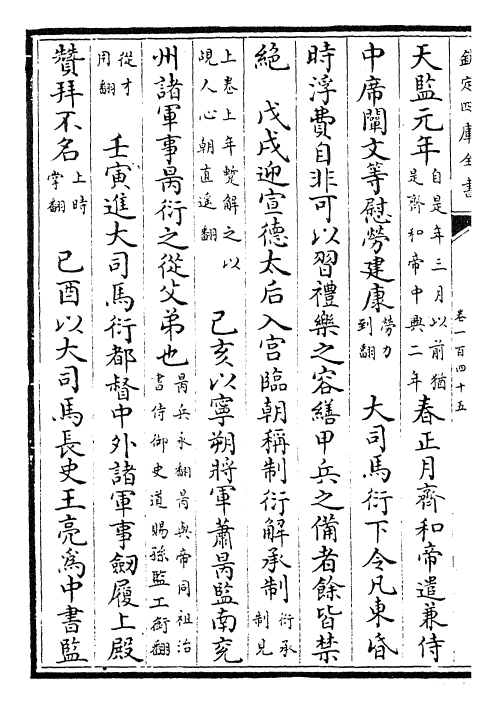 欽定四庫全書
卷一百四十五
天監元年自是年三月以前猶是齊和帝中興二年春正月齊和帝遣兼侍
中席闡文等慰勞建康勞力到翻大司馬衍下令凡東昏
時浮費自非可以習禮樂之容繕甲兵之備者餘皆禁
絕 戊戌迎宣德太后入宮臨朝稱制衍解承制衍承制見
上卷上年蹔解之以覬人心朝直遥翻 己亥以寧朔將軍蕭昺監南兖
州諸軍事昺衍之從父弟也昺兵永翻昺與帝同祖治書侍御史道賜孫監工銜翻
從才用翻 壬寅進大司馬衍都督中外諸軍事劔履上殿
贊拜不名上時掌翻 己酉以大司馬長史王亮爲中書監